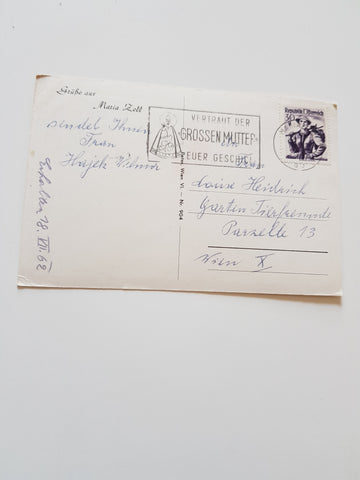 Grüße aus
Maria Zell
sendet Ihnen
Frau
Hajek Wilma
VERTRAUT DER
GROSSEN MUTTER
EUER GESCHICK
Republik Österreich
Wien VI - Nr. 904
Louise Heidrich
Garten Tierfreunde
Parzelle 13
Wien X